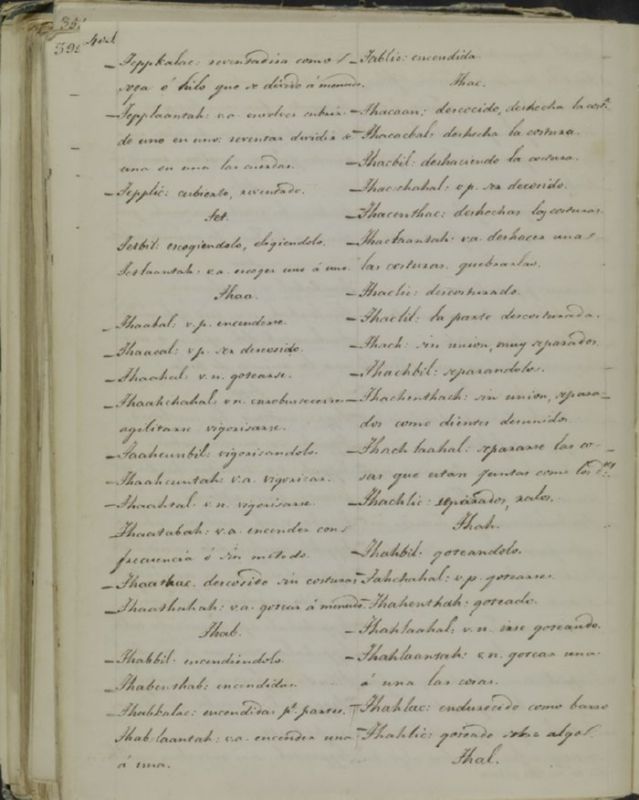 35
392
Teppkalac: reventadiza como
soga ó hilo que se dividió á menudo.
Tepplaantah: v.a. envolver cubrir
de uno en uno: reventar dividir de
una en una las cuerdas.
Tepplic: cubierto, reventado.
Tet.
Tetbil: escogiendolo, eligiendolo.
Tetlaantah: v.a. escoger uno á uno.
Thaa.
Thaabal: v.p. encenderse.
Thaacal: v.p. ser descosido.
Thaahal: v.n. gotearse.
Thaahchahal: v.n. enrobustecerse
agilitarse vigorisarse.
Taahcunbil: vigorisandolo.
Thaahcuntah: v.a. vigorizar.
Thaahtal: v.n. vigorisarse.
Thaatabah: v.a. encender con
frecuencia ó sin metodo.
descosido sin costuras
v.a. gotear á menudo.
Thab.
Thabbil: encendiendolo.
Thabenthab: encendidas.
Thabkalac: encendidas pr. partes.
Thab laantah: v.a. encender una
á una.
Tablic: encendida
Thac.
Thacaan: descocido, deshecha la
Thacacbal: deshecha la costura.
Thacbil: deshaciendo la costura.
Thacchahal: v.p. ser decosido.
Thacenthac: deshechas las costuras.
Thaclaantah: v.a. deshacer una
las costuras. quebrarlas.
Thaclic: descosturado.
Thaclil: la parte descosturada.
Thach: sin union, muy separados.
Thachbil: separandolos.
Thachenthach: sin union, separa-
dos como dientes desunidos.
Thach laahal: separarse las co-
sas que estan juntas como los
Thachlic: separados, ralos.
Thah.
Thahbil: goteandolo.
Tahchahal: v.p. gotearse.
Thahenthah: goteado.
Thahlaahal: v.n. irse goteando.
Thahlaantah: v.n. gotear una
á una las cosas.
Thahlac: endurecido como barro
Thahlic: goteado sobre algo.
Thal.